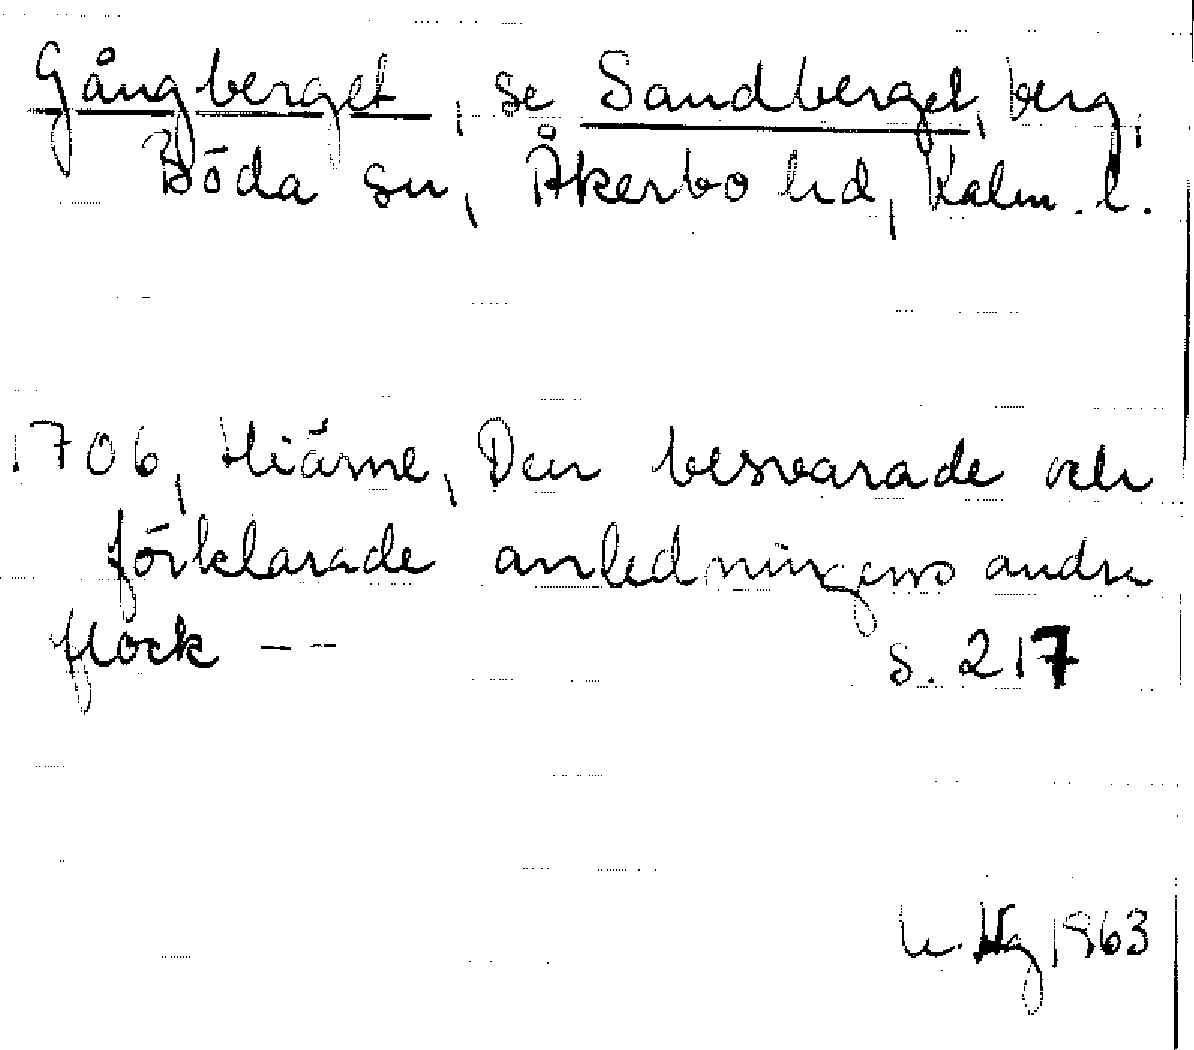 Gångberget, se Sandberget, berg,
Böda sn, Åkerbo hd, Kalm. l.
1706, Hiärne, Den besvarade och
förklarade anledningens andra
flock ---
s. 217
1963